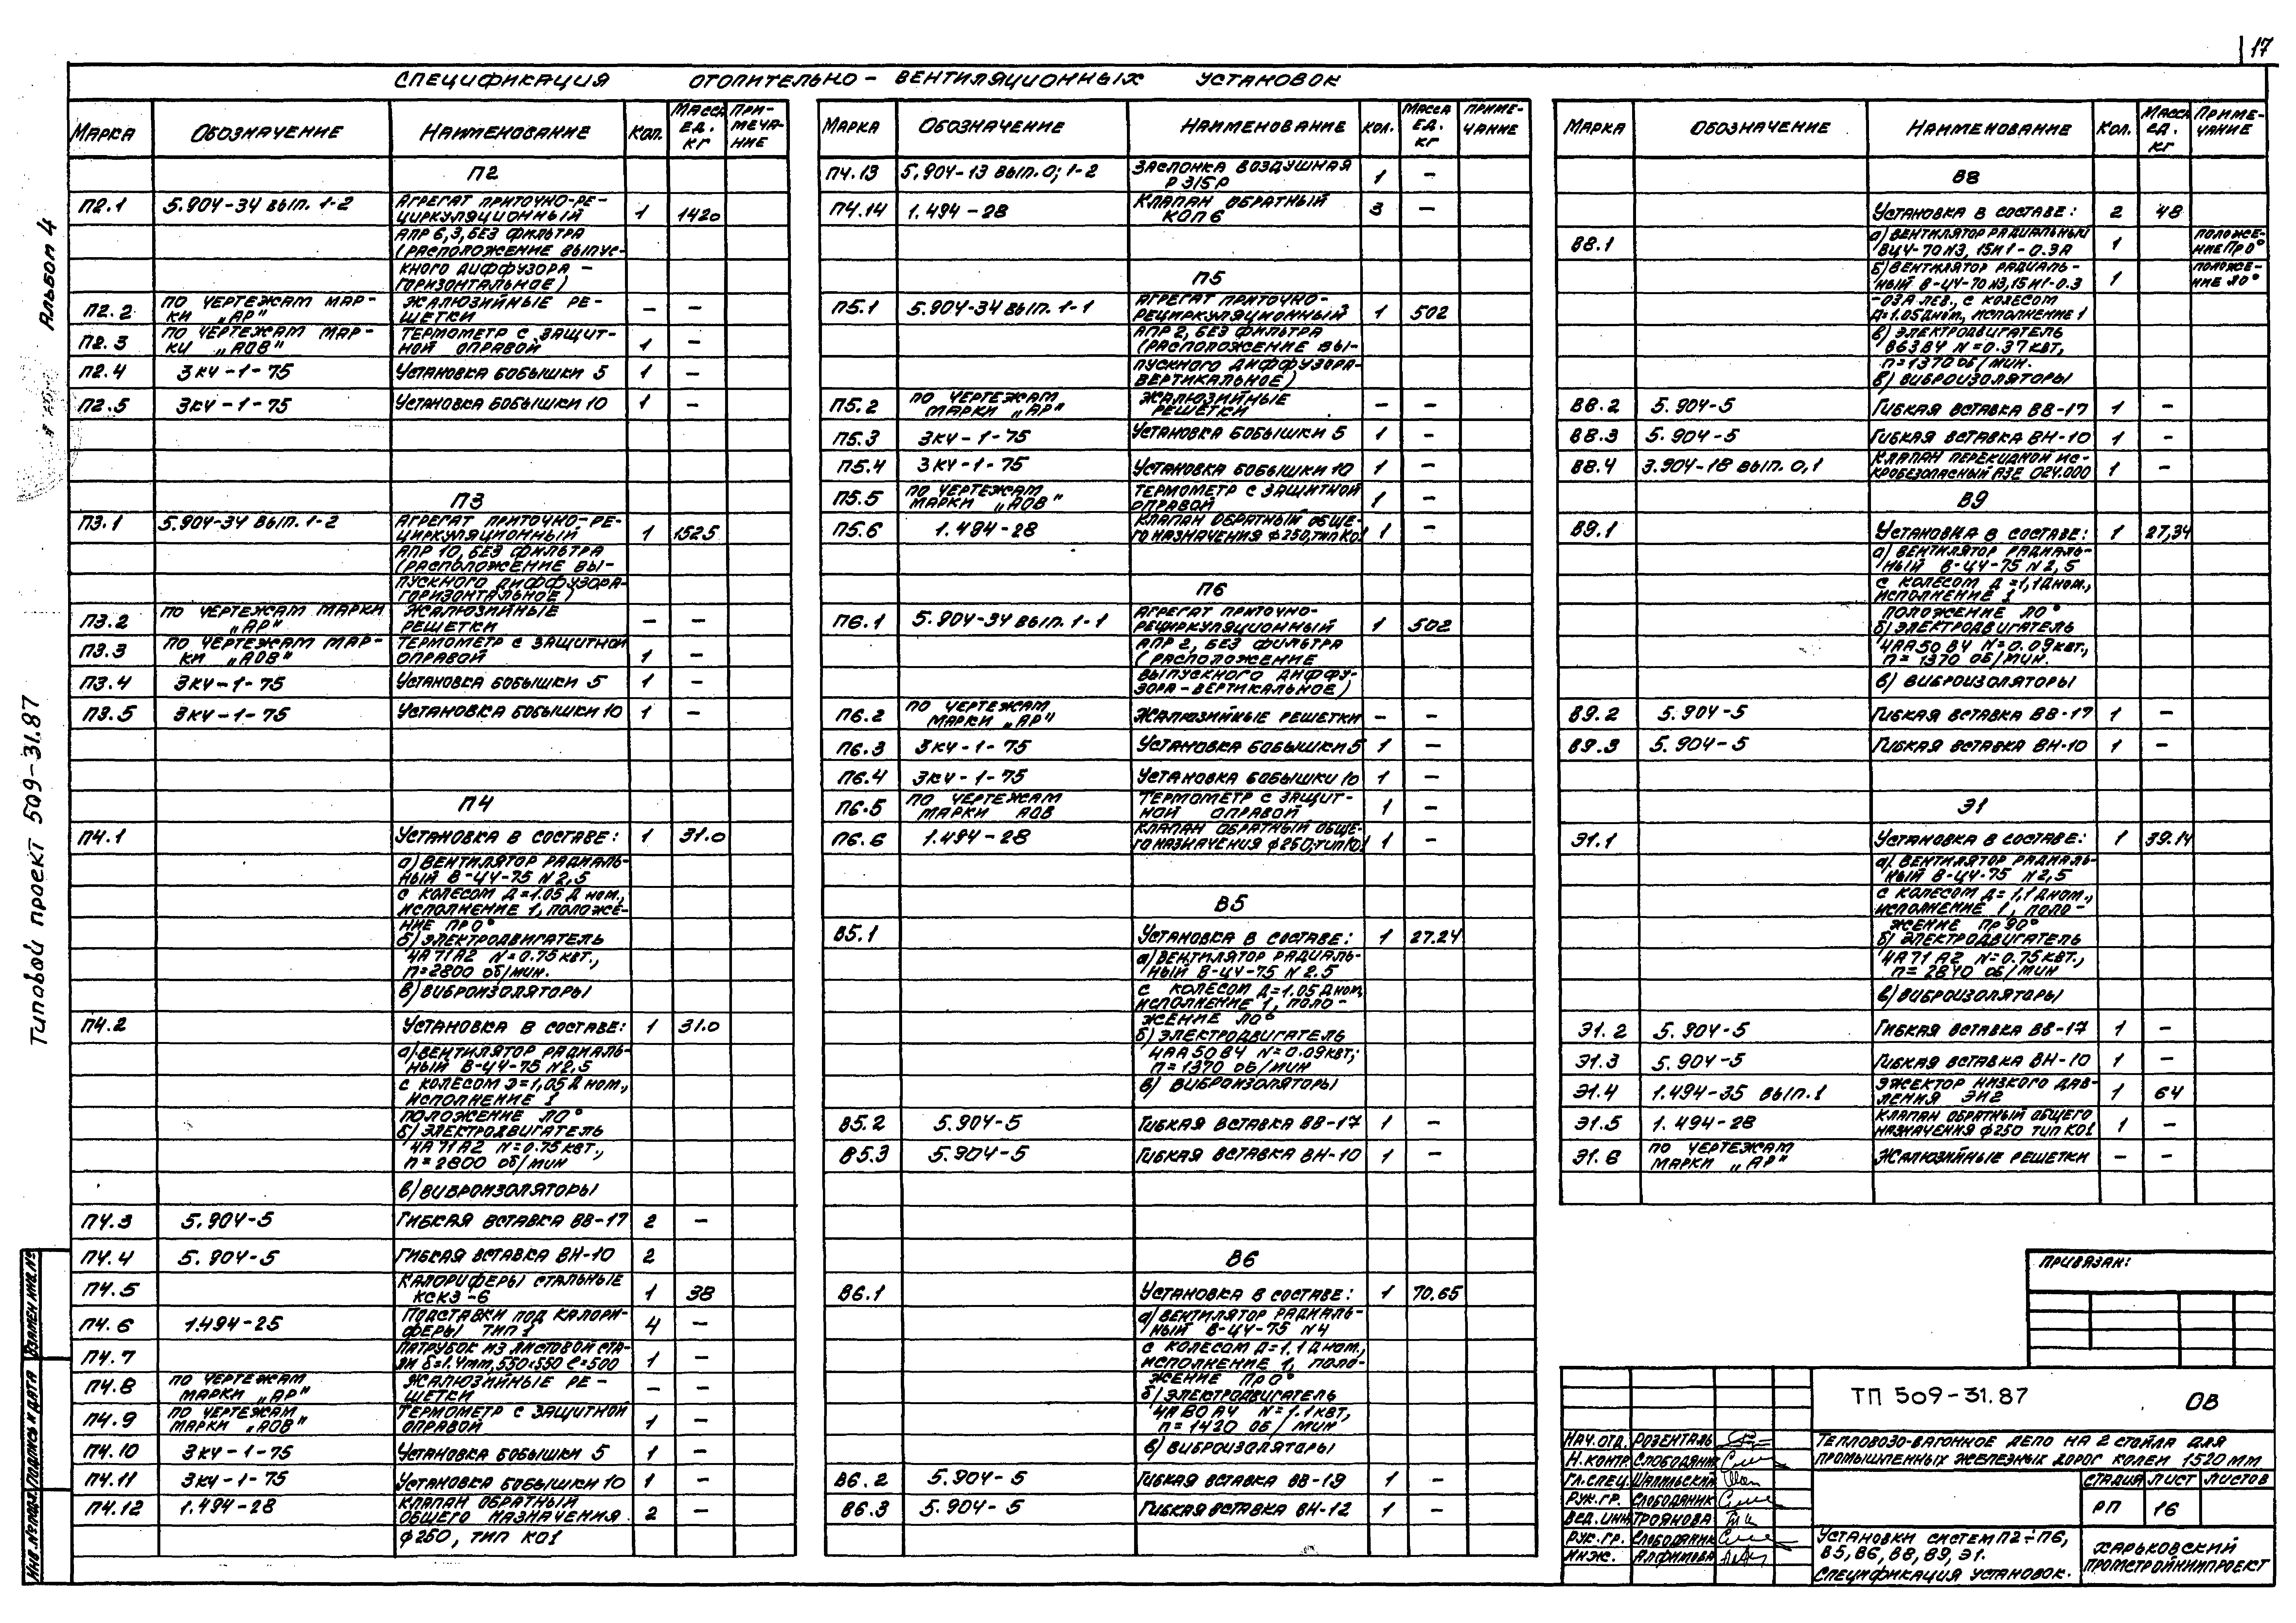 17
СПЕЦИФИКАЦИЯ ОТОПИТЕЛЬНО-ВЕНТИЛЯЦИОННЫХ УСТАНОВОК
МАРКА ОБОЗНАЧЕНИЕ НАИМЕНОВАНИЕ КОЛ. МАССА ЕД. КГ ПРИМЕЧАНИЕ
П2
П2.1 5.904-34 ВЫП. 1-2 АГРЕГАТ ПРИТОЧНО-РЕ-
ЦИРКУЛЯЦИОННЫЙ 1 1420
АПР 6,3, БЕЗ ФИЛЬТРА
(РАСПОЛОЖЕНИЕ ВЫПУС-
КНОГО ДИФФУЗОРА -
ГОРИЗОНТАЛЬНОЕ)
П2.2 ПО ЧЕРТЕЖАМ МАР-
КИ „АР" ЖАЛЮЗИЙНЫЕ РЕ-
ШЕТКИ — —
П2.3 ПО ЧЕРТЕЖАМ МАР-
КИ „АОВ" ТЕРМОМЕТР С ЗАЩИТ-
НОЙ ОПРАВОЙ 1 —
П2.4 ЗКЧ-1-75 УСТАНОВКА БОБЫШКИ 5 1 —
П2.5 ЗКЧ-1-75 УСТАНОВКА БОБЫШКИ 10 1 —
П3
П3.1 5.904-34 ВЫП. 1-2 АГРЕГАТ ПРИТОЧНО-РЕ-
ЦИРКУЛЯЦИОННЫЙ 1 1525
АПР 10, БЕЗ ФИЛЬТРА
(РАСПОЛОЖЕНИЕ ВЫ-
ПУСКНОГО ДИФФУЗОРА-
ГОРИЗОНТАЛЬНОЕ)
П3.2 ПО ЧЕРТЕЖАМ МАРКИ
„АР" ЖАЛЮЗИЙНЫЕ
РЕШЕТКИ — —
П3.3 ПО ЧЕРТЕЖАМ МАР-
КИ „АОВ" ТЕРМОМЕТР С ЗАЩИТНОЙ
ОПРАВОЙ 1 —
П3.4 ЗКЧ-1-75 УСТАНОВКА БОБЫШКИ 5 1 —
П3.5 ЗКЧ-1-75 УСТАНОВКА БОБЫШКИ 10 1 —
П4
П4.1 УСТАНОВКА В СОСТАВЕ: 1 31.0
а) ВЕНТИЛЯТОР РАДИАЛЬ-
НЫЙ В-Ц4-75 N2,5
С КОЛЕСОМ Д=1.05 Д НОМ.,
ИСПОЛНЕНИЕ 1, ПОЛОЖЕ-
НИЕ ПР0°
б) ЭЛЕКТРОДВИГАТЕЛЬ
4А71А2 N=0.75 КВТ.,
n=2800 ОБ/МИН.
в) ВИБРОИЗОЛЯТОРЫ
П4.2 УСТАНОВКА В СОСТАВЕ: 1 31.0
а) ВЕНТИЛЯТОР РАДИАЛЬ-
НЫЙ В-Ц4-75 N2,5
С КОЛЕСОМ Э=1,05 Д НОМ.,
ИСПОЛНЕНИЕ 1
ПОЛОЖЕНИЕ Л0°
б) ЭЛЕКТРОДВИГАТЕЛЬ
4А71А2 N=0.75 КВТ.,
n=2800 ОБ/МИН
в) ВИБРОИЗОЛЯТОРЫ
П4.3 5.904-5 ГИБКАЯ ВСТАВКА ВВ-17 2 —
П4.4 5.904-5 ГИБКАЯ ВСТАВКА ВН-10 2
П4.5 КАЛОРИФЕРЫ СТАЛЬНЫЕ
КСК3-6 1 38
П4.6 1.494-25 ПОДСТАВКИ ПОД КАЛОРИ-
ФЕРЫ ТИП 1 4 —
П4.7 ПАТРУБОК ИЗ ЛИСТОВОЙ СТА-
ЛИ δ=1.4mm, 550×550 ℓ=500 1 —
П4.8 ПО ЧЕРТЕЖАМ
МАРКИ „АР" ЖАЛЮЗИЙНЫЕ РЕ-
ШЕТКИ — —
П4.9 ПО ЧЕРТЕЖАМ
МАРКИ „АОВ" ТЕРМОМЕТР С ЗАЩИТНОЙ
ОПРАВОЙ 1 —
П4.10 ЗКЧ-1-75 УСТАНОВКА БОБЫШКИ 5 1 —
П4.11 ЗКЧ-1-75 УСТАНОВКА БОБЫШКИ 10 1 —
П4.12 1.494-28 КЛАПАН ОБРАТНЫЙ
ОБЩЕГО НАЗНАЧЕНИЯ 2 —
ф250, ТИП КО1
МАРКА ОБОЗНАЧЕНИЕ НАИМЕНОВАНИЕ КОЛ. МАССА ЕД. КГ ПРИМЕ-ЧАНИЕ
П4.13 5.904-13 ВЫП. 0; 1-2 ЗАСЛОНКА ВОЗДУШНАЯ
Р 315Р 1 —
П4.14 1.494-28 КЛАПАН ОБРАТНЫЙ
КОП6 3 —
П5
П5.1 5.904-34 ВЫП. 1-1 АГРЕГАТ ПРИТОЧНО-
РЕЦИРКУЛЯЦИОННЫЙ 1 502
АПР 2, БЕЗ ФИЛЬТРА
(РАСПОЛОЖЕНИЕ ВЫ-
ПУСКНОГО ДИФФУЗОРА-
ВЕРТИКАЛЬНОЕ)
П5.2 ПО ЧЕРТЕЖАМ
МАРКИ „АР" ЖАЛЮЗИЙНЫЕ
РЕШЕТКИ — —
П5.3 ЗКЧ-1-75 УСТАНОВКА БОБЫШКИ 5 1 —
П5.4 ЗКЧ-1-75 УСТАНОВКА БОБЫШКИ 10 1 —
П5.5 ПО ЧЕРТЕЖАМ
МАРКИ „АОВ" ТЕРМОМЕТР С ЗАЩИТНОЙ
ОПРАВОЙ 1 —
П5.6 1.494-28 КЛАПАН ОБРАТНЫЙ ОБЩЕ-
ГО НАЗНАЧЕНИЯ ф250, ТИП КО1 1 —
П6
П6.1 5.904-34 ВЫП. 1-1 АГРЕГАТ ПРИТОЧНО-
РЕЦИРКУЛЯЦИОННЫЙ 1 502
АПР 2, БЕЗ ФИЛЬТРА
(РАСПОЛОЖЕНИЕ
ВЫПУСКНОГО ДИФФУ-
ЗОРА-ВЕРТИКАЛЬНОЕ)
П6.2 ПО ЧЕРТЕЖАМ
МАРКИ „АР" ЖАЛЮЗИЙНЫЕ РЕШЕТКИ — —
П6.3 ЗКЧ-1-75 УСТАНОВКА БОБЫШКИ 5 1 —
П6.4 ЗКЧ-1-75 УСТАНОВКА БОБЫШКИ 10 1 —
П6.5 ПО ЧЕРТЕЖАМ
МАРКИ АОВ ТЕРМОМЕТР С ЗАЩИТ-
НОЙ ОПРАВОЙ 1 —
П6.6 1.494-28 КЛАПАН ОБРАТНЫЙ ОБЩЕ-
ГО НАЗНАЧЕНИЯ ф250, ТИП КО1 1 —
В5
В5.1 УСТАНОВКА В СОСТАВЕ: 1 27.24
а) ВЕНТИЛЯТОР РАДИАЛЬ-
НЫЙ В-Ц4-75 N 2.5
С КОЛЕСОМ Д=1.05 Д НОМ,
ИСПОЛНЕНИЕ 1, ПОЛО-
ЖЕНИЕ Л0°
б) ЭЛЕКТРОДВИГАТЕЛЬ
4АА50В4 N=0.09 КВТ;
n=1370 ОБ/МИН
в) ВИБРОИЗОЛЯТОРЫ
В5.2 5.904-5 ГИБКАЯ ВСТАВКА ВВ-17 1 —
В5.3 5.904-5 ГИБКАЯ ВСТАВКА ВН-10 1 —
В6
В6.1 УСТАНОВКА В СОСТАВЕ: 1 70.65
а) ВЕНТИЛЯТОР РАДИАЛЬ-
НЫЙ В-Ц4-75 N4
С КОЛЕСОМ Д=1,1 Д НОМ.,
ИСПОЛНЕНИЕ 1, ПОЛО-
ЖЕНИЕ ПР0°
б) ЭЛЕКТРОДВИГАТЕЛЬ
4А80А4 N=1.1 КВТ,
n=1420 ОБ/МИН
в) ВИБРОИЗОЛЯТОРЫ
В6.2 5.904-5 ГИБКАЯ ВСТАВКА ВВ-19 1 —
В6.3 5.904-5 ГИБКАЯ ВСТАВКА ВН-12 1 —
МАРКА ОБОЗНАЧЕНИЕ НАИМЕНОВАНИЕ КОЛ. МАССА ЕД. КГ ПРИМЕ-ЧАНИЕ
В8
УСТАНОВКА В СОСТАВЕ: 2 48
В8.1 а) ВЕНТИЛЯТОР РАДИАЛЬНЫЙ
ВЦ4-70 N3, 15И1-0.3А 1 ПОЛОЖЕ-
НИЕ ПР0°
б) ВЕНТИЛЯТОР РАДИАЛЬ-
НЫЙ В-Ц4-70 N3,15И1-0.3 1 ПОЛОЖЕ-
НИЕ Л0°
-03А ЛЕВ., С КОЛЕСОМ
Д=1.05 Дном, ИСПОЛНЕНИЕ 1
в) ЭЛЕКТРОДВИГАТЕЛЬ
В63В4 N=0.37 КВТ,
n=1370 ОБ/МИН.
в) ВИБРОИЗОЛЯТОРЫ
В8.2 5.904-5 ГИБКАЯ ВСТАВКА ВВ-17 1 —
В8.3 5.904-5 ГИБКАЯ ВСТАВКА ВН-10 1 —
В8.4 3.904-18 ВЫП. 0,1 КЛАПАН ПЕРЕКИДНОЙ ИС-
КРОБЕЗОПАСНЫЙ АЗЕ 024.000 1 —
В9
В9.1 УСТАНОВКА В СОСТАВЕ: 1 27,34
а) ВЕНТИЛЯТОР РАДИАЛЬ-
НЫЙ В-Ц4-75 N2,5
С КОЛЕСОМ Д=1,1 Дном.,
ИСПОЛНЕНИЕ 1
ПОЛОЖЕНИЕ Л0°
б) ЭЛЕКТРОДВИГАТЕЛЬ
4АА50В4 N=0.09 КВТ.,
n=1370 ОБ/МИН.
в) ВИБРОИЗОЛЯТОРЫ
В9.2 5.904-5 ГИБКАЯ ВСТАВКА ВВ-17 1 —
В9.3 5.904-5 ГИБКАЯ ВСТАВКА ВН-10 1 —
Э1
Э1.1 УСТАНОВКА В СОСТАВЕ: 1 39.14
а) ВЕНТИЛЯТОР РАДИАЛЬ-
НЫЙ В-Ц4-75 N2,5
С КОЛЕСОМ Д=1,1 Дном.,
ИСПОЛНЕНИЕ 1, ПОЛО-
ЖЕНИЕ ПР90°
б) ЭЛЕКТРОДВИГАТЕЛЬ
4А71А2 N=0.75 КВТ.,
n=2840 ОБ/МИН
в) ВИБРОИЗОЛЯТОРЫ
Э1.2 5.904-5 ГИБКАЯ ВСТАВКА ВВ-17 1 —
Э1.3 5.904-5 ГИБКАЯ ВСТАВКА ВН-10 1 —
Э1.4 1.494-35 ВЫП.1 ЭЖЕКТОР НИЗКОГО ДАВ-
ЛЕНИЯ ЭИ2 1 64
Э1.5 1.494-28 КЛАПАН ОБРАТНЫЙ ОБЩЕГО
НАЗНАЧЕНИЯ ф250 ТИП КО1 1 —
Э1.6 ПО ЧЕРТЕЖАМ
МАРКИ „АР" ЖАЛЮЗИЙНЫЕ РЕШЕТКИ — —
ПРИВЯЗАН:
ТП 509-31.87 ОВ
НАЧ.ОТД. РОЗЕНТАЛЬ
Н.КОНТР. СЛОБОДЯНИК
ГЛ.СПЕЦ. ШАПИЛЬСКИЙ
РУК.ГР. СЛОБОДЯНИК
ВЕД.ИНЖ. ТРОЯНОВА
РУК.ГР. СЛОБОДЯНИК
ИНЖ. АЛФИМОВА
ТЕПЛОВОЗО-ВАГОННОЕ ДЕПО НА 2 СТОЙЛА ДЛЯ
ПРОМЫШЛЕННЫХ ЖЕЛЕЗНЫХ ДОРОГ КОЛЕИ 1520 ММ
СТАДИЯ ЛИСТ ЛИСТОВ
РП 16
УСТАНОВКИ СИСТЕМ П2÷П6,
В5, В6, В8, В9, Э1.
СПЕЦИФИКАЦИЯ УСТАНОВОК.
ХАРЬКОВСКИЙ
ПРОМСТРОЙНИИПРОЕКТ
Альбом 4
Типовой проект 509-31.87
ВЗАМЕН ИНВ.№
ПОДПИСЬ И ДАТА
ИНВ.№ ПОДЛ.